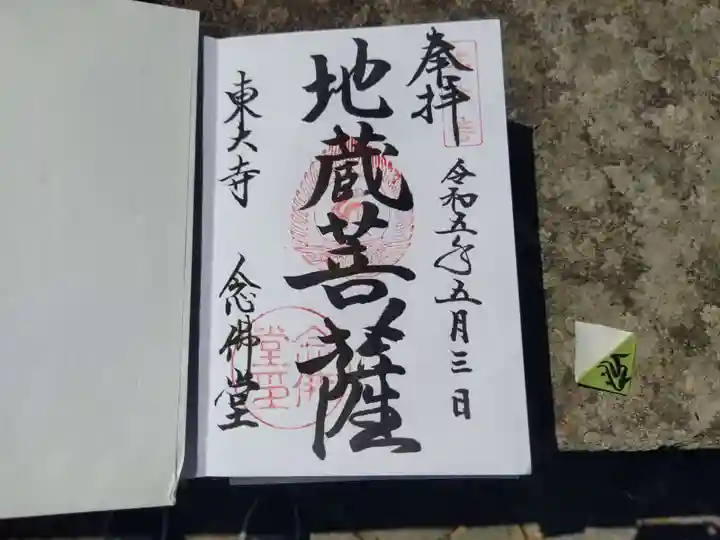 奉拝
令和五年五月三日
地蔵菩薩
東大寺 念佛堂
念佛堂印